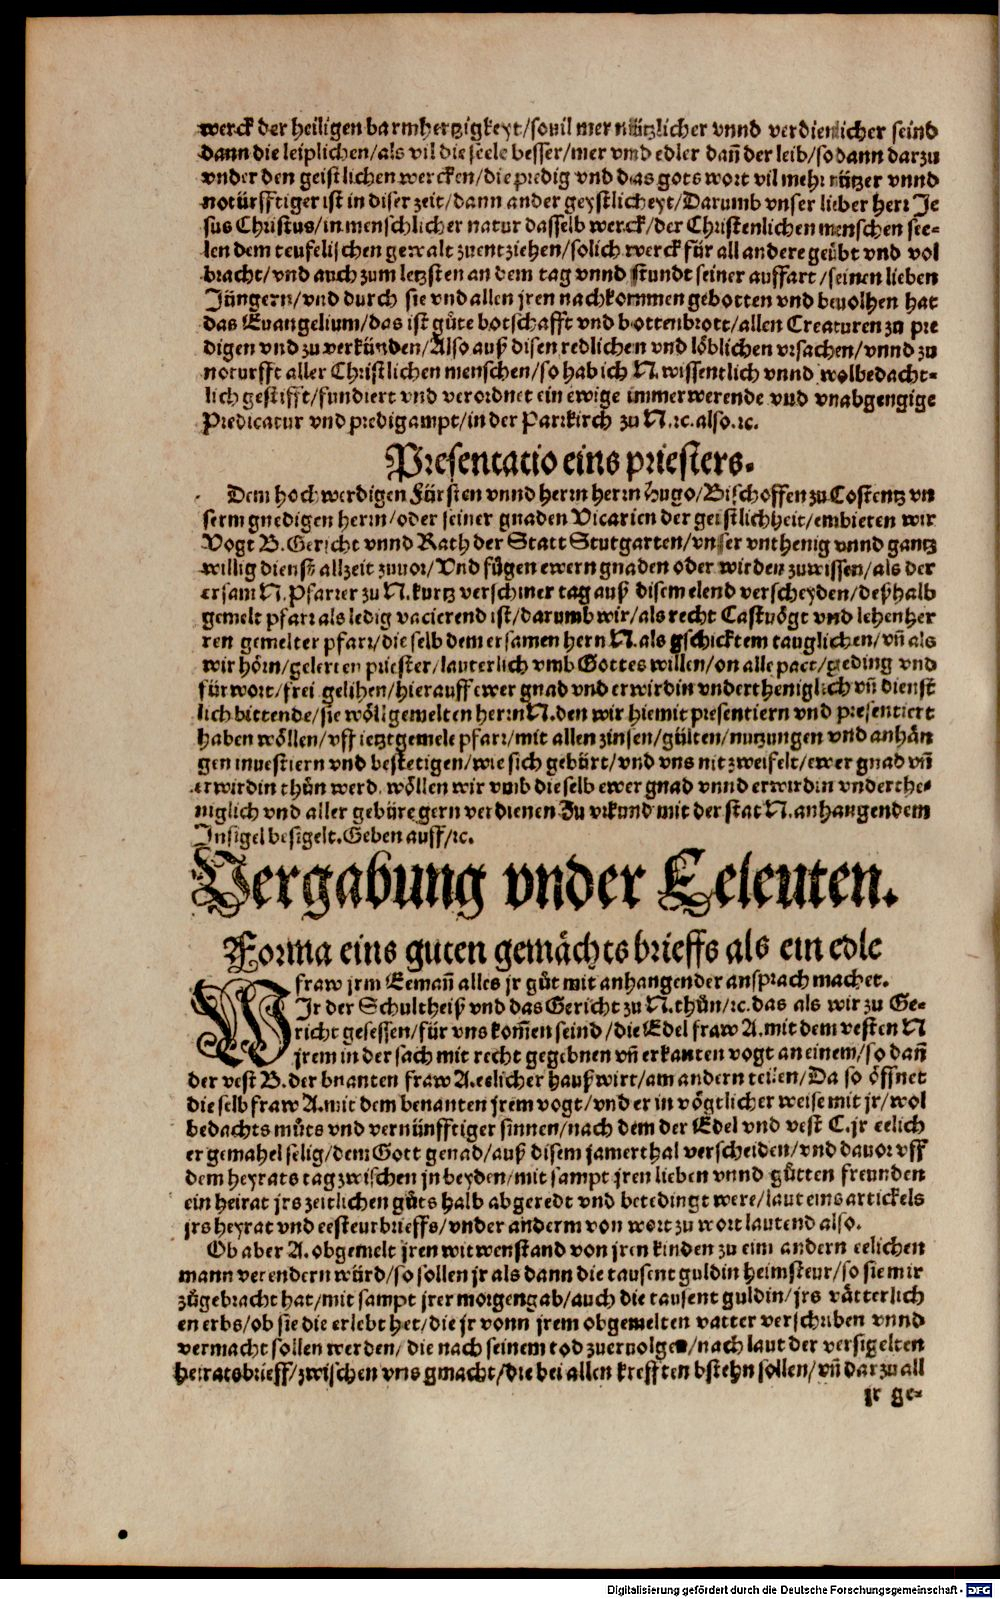 werck der heiligen barmhertzigkeyt/souil mer nützlicher vnnd verdienlicher seind
dann die leiplichen/als vil die seele besser/mer vnd edler dañ der leib/so dann darzu
vnder den geistlichen wercken/die predig vnd das gots wort vil mehr nützer vnnd
notürfftiger ist in diser zeit/dann ander geystlicheyt/Darumb vnser lieber herr Je
sus Christus/in menschlicher natur dasselb werck/der Christenlichen menschen see-
len dem teufelischen gewalt zuentziehen/solich werck für all andere geübt vnd vol
bracht/vnd auch zum letzsten an dem tag vnnd stundt seiner auffart/seinen lieben
Jüngern/vnd durch sie vnd allen jren nachkommen gebotten vnd beuolhen hat
das Euangelium/das ist gůte botschafft vnd bottenbrott/allen Creaturen zu pre
digen vnd zu verkünden/Also auß disen redlichen vnd löblichen vrsachen/vnnd zu
noturfft aller Christlichen menschen/so hab ich N. wissentlich vnnd wolbedacht-
lich gestifft/fundiert vnd verordnet ein ewige immerwerende vnd vnabgengige
Predicatur vnd predigampt/in der Parrkirch zu N. ꝛc. also. ꝛc.
Presentatio eins priesters.
Dem hochwerdigen Fürsten vnnd herrn herrn Hugo/Bischoffen zu Costentz vn
serm gnedigen herrn/oder seiner gnaden Vicarien der geistlichheit/embieten wir
Vogt B. Gericht vnnd Rath der Statt Stutgarten/vnser vnthenig vnnd gantz
willig dienst allzeit zuuor/Vnd fůgen ewern gnaden oder wirden zuwissen/als der
ersam N. Pfarrer zu N. kurtz verschiner tag auß disem elend verscheyden/deßhalb
gemelt pfarr als ledig vacierend ist/darumb wir/als recht Castuögt vnd lehenher
ren gemelter pfarr/die selb dem ersamen hern N. als gschicktem tauglichen/vñ als
wir hörn/gelerten priester/lauterlich vmb Gottes willen/on alle pact/geding vnd
fürwort/frei gelihen/hierauff ewer gnad vnd erwirdin vndertheniglich vñ dienst
lich bittende/sie wöll gemelten herrn N. den wir hiemit presentiern vnd presentiert
haben wöllen/vff ietztgemelt pfarr/mit allen zinsen/gülten/nutzungen vnd anhän
gen inuestiern vnd bestetigen/wie sich gebürt/vnd vns nit zweifelt/ewer gnad vñ
erwirdin thůn werd, wöllen wir vmb die selb ewer gnad vnnd erwirdin vnderthe-
niglich vnd aller gebüre gern verdienen Zu vrkund mit der stat N. anhangendem
Insigel besigelt. Geben auff/ꝛc.
Vergabung vnder Eeleuten.
Forma eins guten gemächts brieffs als ein edle
fraw jrm Eemañ alles jr gůt mit anhangender ansprach machet.
WIr der Schultheiß vnd das Gericht zu N. thůn/ꝛc. das als wir zu Ge-
richt gesessen/für vns kom̃en seind/die Edel fraw A. mit dem vesten N
jrem in der sach mit recht gegebnen vñ erkanten vogt an einem/so dañ
der vest B. der bnanten fraw A. eelicher haußwirt/am andern teilen/Da so öffnet
die selb fraw A. mit dem benanten jrem vogt/vnd er in vögtlicher weise mit jr/wol
bedachts můts vnd vernünfftiger sinnen/nach dem der Edel vnd vest C. jr eelich
er gemahel selig/dem Gott genad/auß disem jamerthal verscheiden/vnd dauor vff
dem heyrats tag zwischen jn beyden/mit sampt jren lieben vnnd gůtten freunden
ein heirat jrs zeitlichen gůts halb abgeredt vnd betedingt were/laut eins artickels
jrs heyrat vnd eesteurbrieffs/vnder anderm von wort zu wort lautend also.
Ob aber A. obgemelt jren witwenstand von jren kinden zu eim andern eelichen
mann verendern würd/so sollen jr als dann die tausent guldin heimsteur/so sie mir
zůgebracht hat/mit sampt jrer morgengab/auch die tausent guldin/jrs vätterlich
en erbs/ob sie die erlebt het/die jr vonn jrem obgemelten vatter verschriben vnnd
vermacht sollen werden/die nach seinem tod zueruolgen/nach laut der versigelten
heiratsbrieff/zwischen vns gmacht/die bei allen krefften bstehn sollen/vñ darzu all
jr ge-
Digitalisierung gefördert durch die Deutsche Forschungsgemeinschaft - DFG